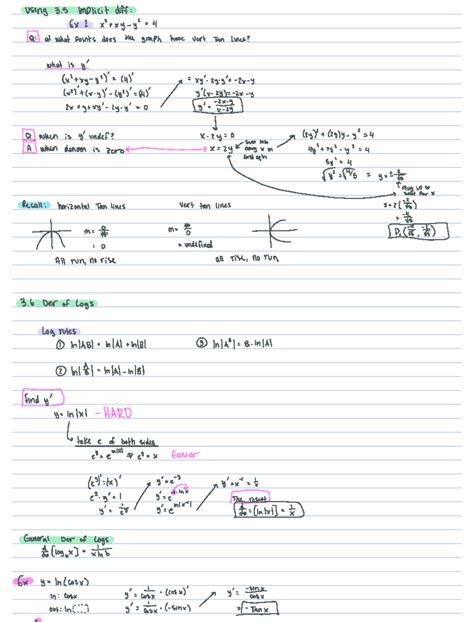 using 3.5 Implicit diff:
Ex 2 x² + xy - y² = 4
Q: at what points does the graph have vert Tan lines?
what is y'
(x² + xy - y²)' = (4)'
(x²)' + (x·y)' - (y²)' = (4)'
2x + y + xy' - 2y·y' = 0
= xy' - 2y·y' = -2x-y
y'(x-2y) = -2x-y
y' = -2x-y / x-2y
Q when is y' undef?
A when denom is zero
x - 2y = 0
x = 2y
sub into
(2y)² + (2y)y - y² = 4
4y² + 2y² - y² = 4
5y² = 4
√y² = √4/5 = y = ± 2/√5
Recall: horizontal Tan lines
m = 0/#
= 0
All run, no rise
Vert tan lines
m = #/0
= undefined
all rise, no run
3.6 Der of Logs
Log rules
① ln|AB| = ln|A| + ln|B|
③ ln|Aᴮ| = B·ln|A|
② ln|A/B| = ln|A| - ln|B|
find y'
y = ln|x| - HARD
take e of both sides
Easier
(eʸ)' = (x)'
eʸ·y' = 1
y' = 1/eʸ
y' = e⁻ʸ
The result
General Der of Logs
Ex y = ln(cosx)
ln: cosx
y' = 1/cosx · (cosx)'
y' = 1/cosx · (-sinx)
y' = -sinx/cosx
= -Tanx